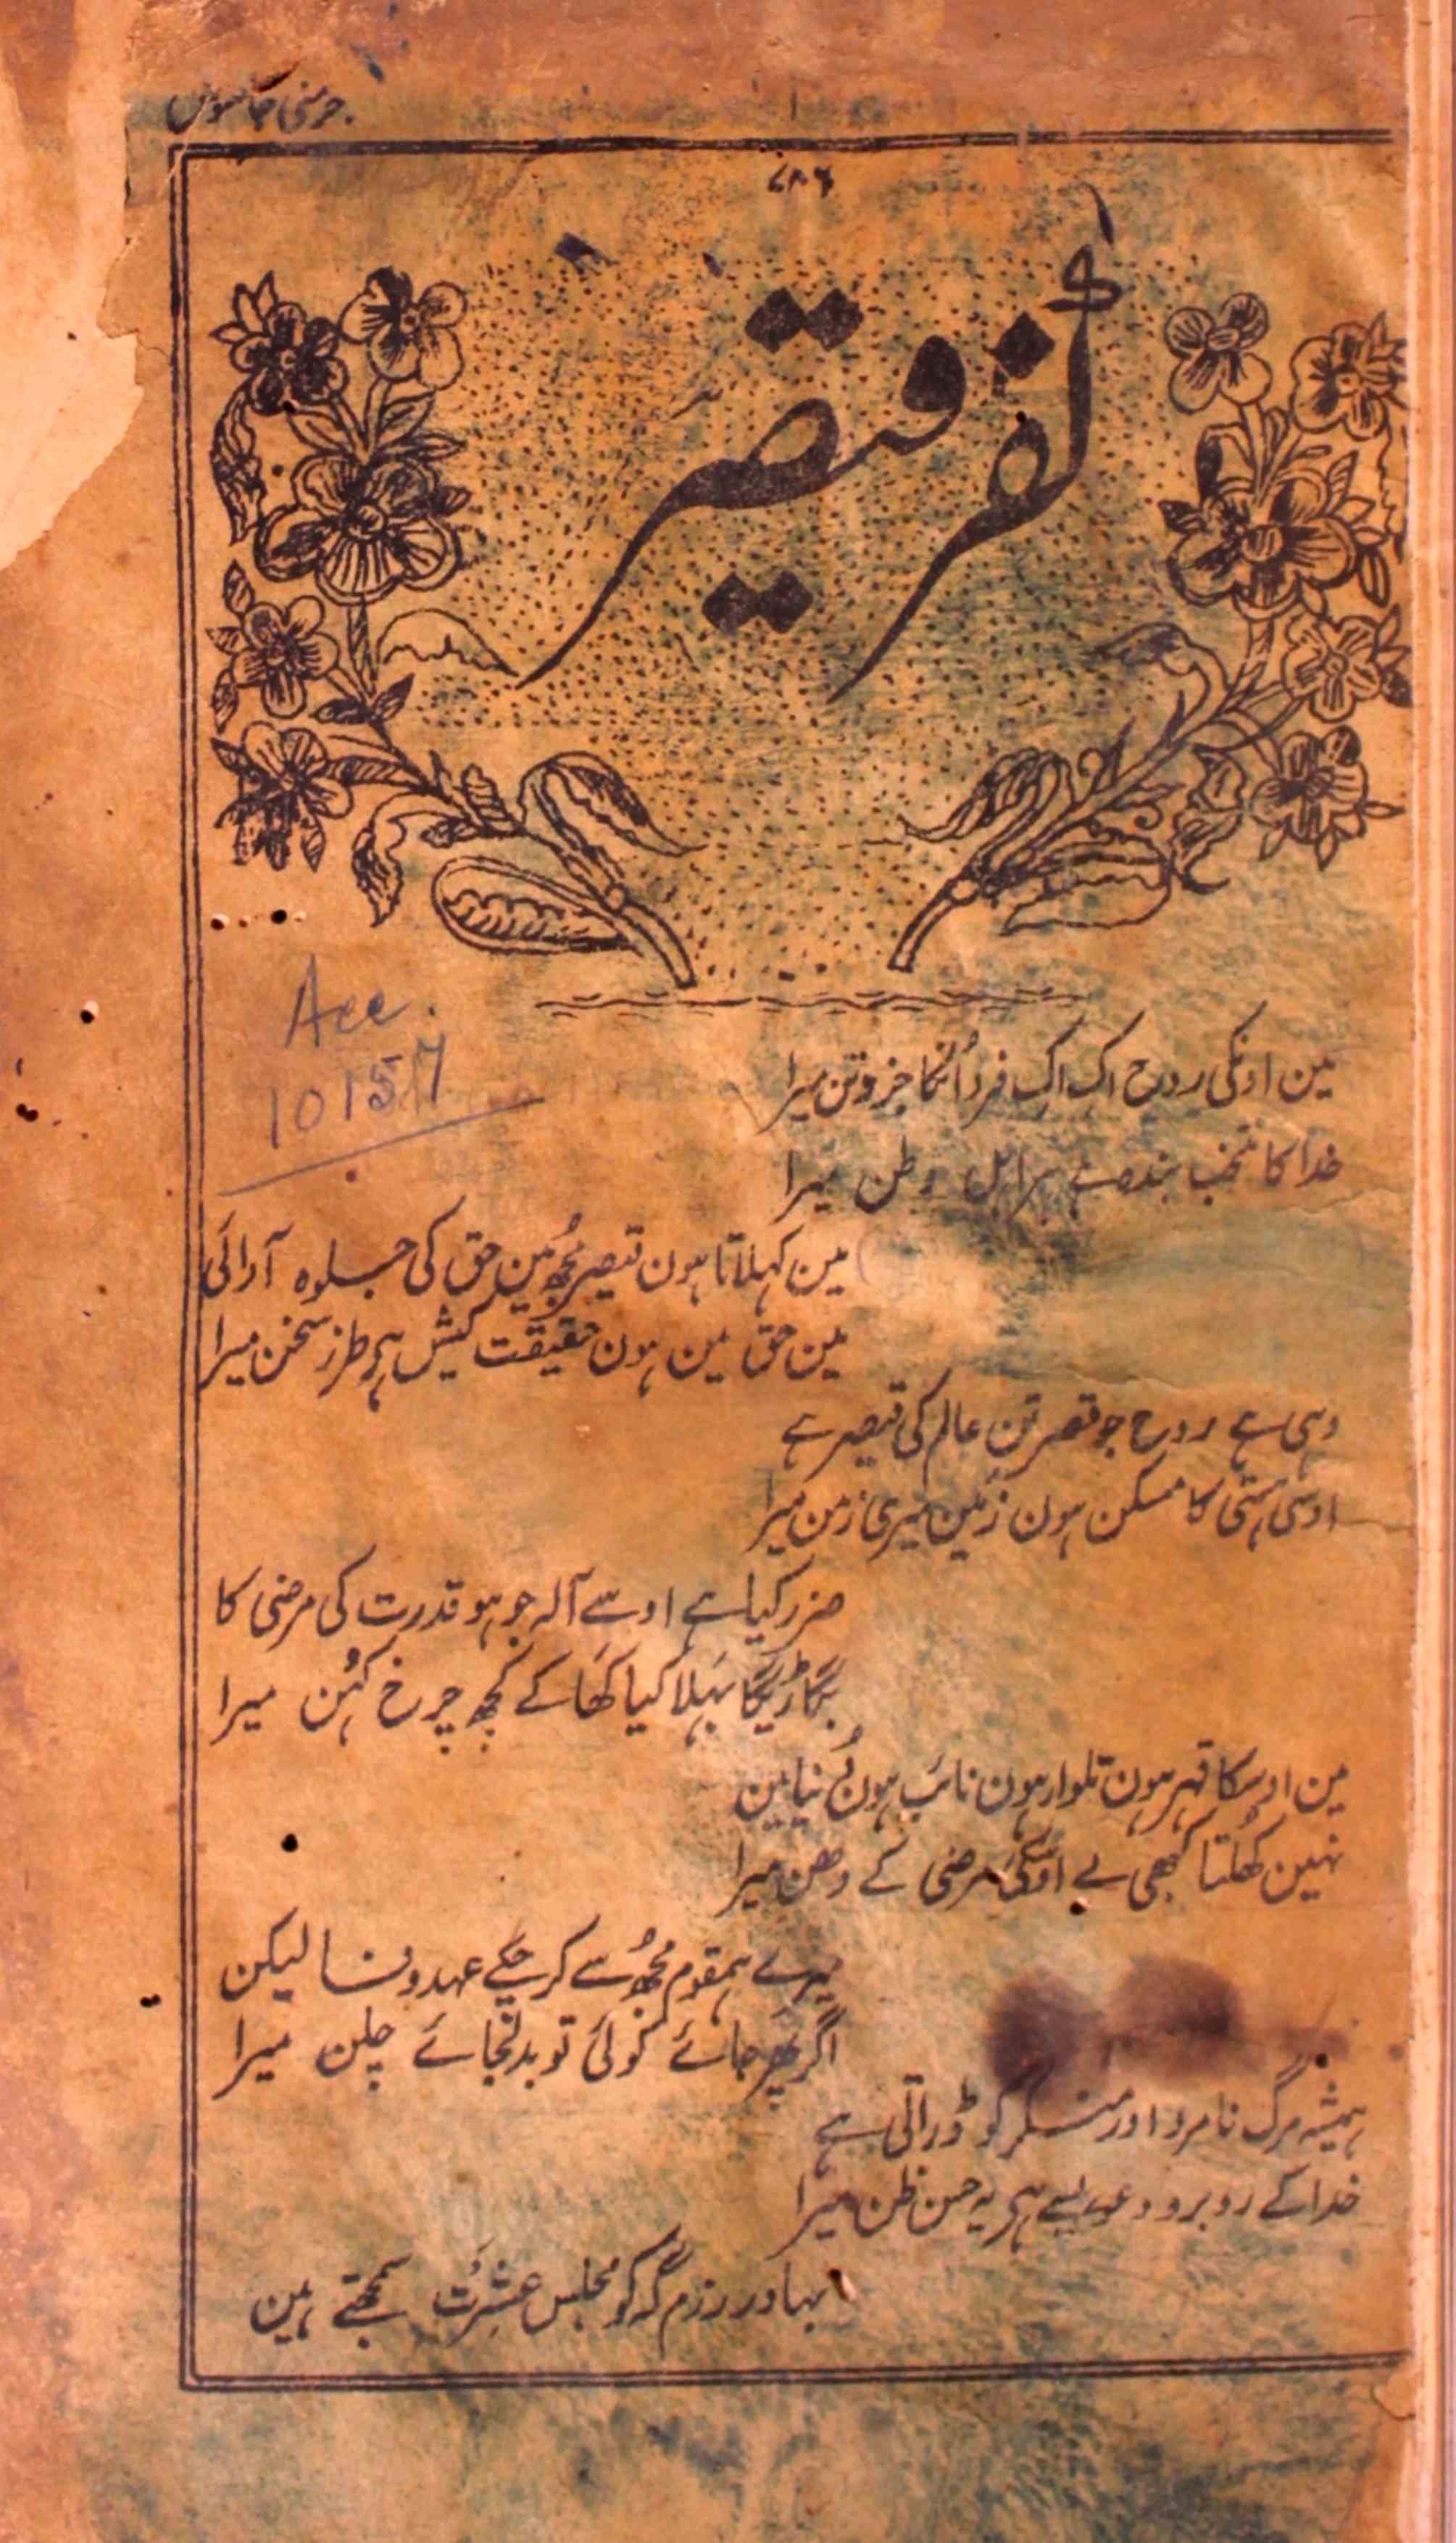 جرمنی جاسوس
۷۸۶
کفر قیصر
Acc.
10157
مین اونکی روح اک اک فرد اُنکا جزوتن میرا
خدا کا منتخب بندہ ہے ہر اہل وطن میرا
مین کہلاتا ہون قیصر مُجھ مین حق کی جلوہ آرائی
مین حق مین ہون حقیقت کیش ہر طرز سخن میرا
وہی ہے روح جو قصر تن عالم کی قیصر ہے
اوسی ہستی کا مسکن ہون زمین میری زمن میرا
ضرر کیا ہے اوسے آلہ جو ہو قدرت کی مرضی کا
بگاڑیگا بہلا کیا کھَا کے کچھ چرخ کُہن میرا
مین اوسکا قہر ہون تلوار ہون نائب ہون دُنیا مین
نہین کھُلتا کبھی بے اوسکی مرضی کے دہن میرا
میرے ہمقوم مُجھُ سے کر چکے عہد وفا لیکن
اگر پھر جائے کوئی تو بدلجائے چلن میرا
ہمیشہ مرگ نامرد اور منکر کو ڈراتی ہے
خدا کے روبرو دعوے سے ہر یہ حسن ظن میرا
بہادر رزم گہ کو مجلس عشرت سمجھتے ہین